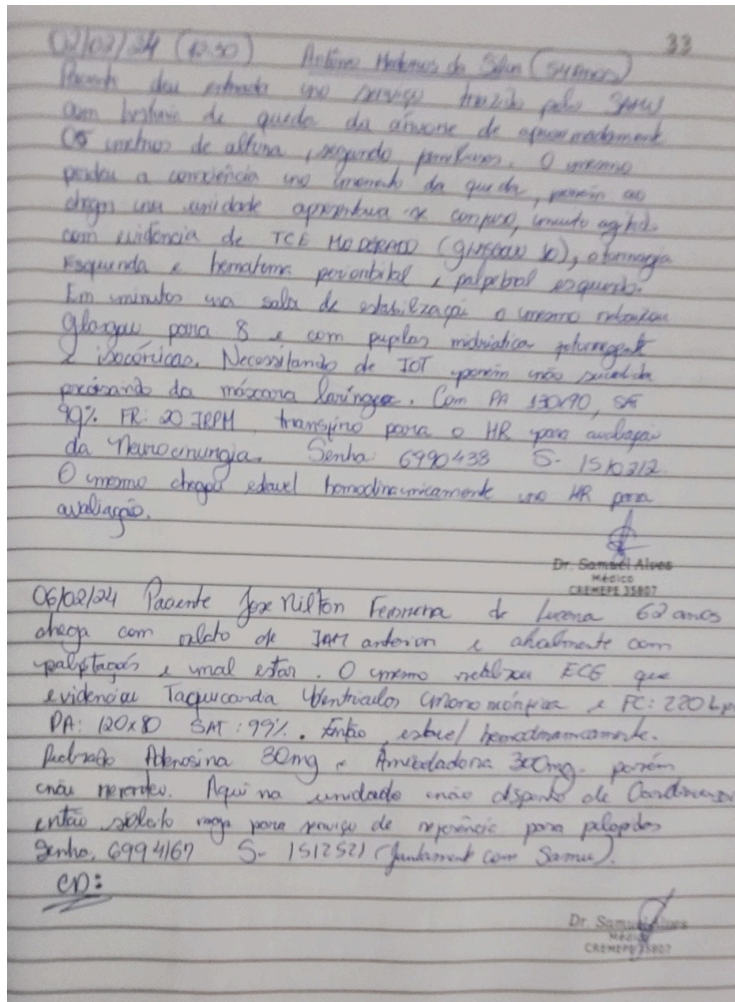 33
02/02/24 (12:30) Antônio da Silva (54 anos)
Paciente deu entrada no serviço trazido pelo SAMU
com história de queda da árvore de aproximadamente
05 metros de altura, segundo familiares. O mesmo
perdeu a consciência no momento da queda, porém ao
chegar na unidade apresentava-se confuso, muito agitado
com evidência de TCE MODERADO (GLASGOW 10), otorragia
Esquerda e hematoma periorbital e palpebral esquerdo.
Em minutos na sala de estabilização o mesmo rebaixou
Glasgow para 8 e com pupilas midriática
e isocóricas. Necessitando de IOT porém não sucedida
precisando da máscara laríngea. Com PA 130x90, SAT
99% FR: 20 IRPM, transfiro para o HR para avaliação
da Neurocirurgia. Senha: 6990438 S- 1510212
O mesmo chegou estável hemodinamicamente no HR para
avaliação.
Dr. Samuel Alves
Médico
CREMEPE 35807
06/02/24 Paciente Jose Nilton Ferreira de Lucena 62 anos
chega com relato de IAM anterior e atualmente com
palpitações e mal estar. O mesmo realizou ECG que
evidenciou Taquicardia Ventricular monomórfica e FC: 220 bpm
PA: 120x80 SAT: 99%. Então, estável hemodinamicamente.
Realizado Adenosina 30mg e Amiodarona 300mg. porém
não reverteu. Aqui na unidade não disponho de
então solicito vaga para serviço de referência para
Senha, 6994167 S- 1512521 (juntamente com Samu).
CD:
Dr. Samuel Alves
Médico
CREMEPE 35807